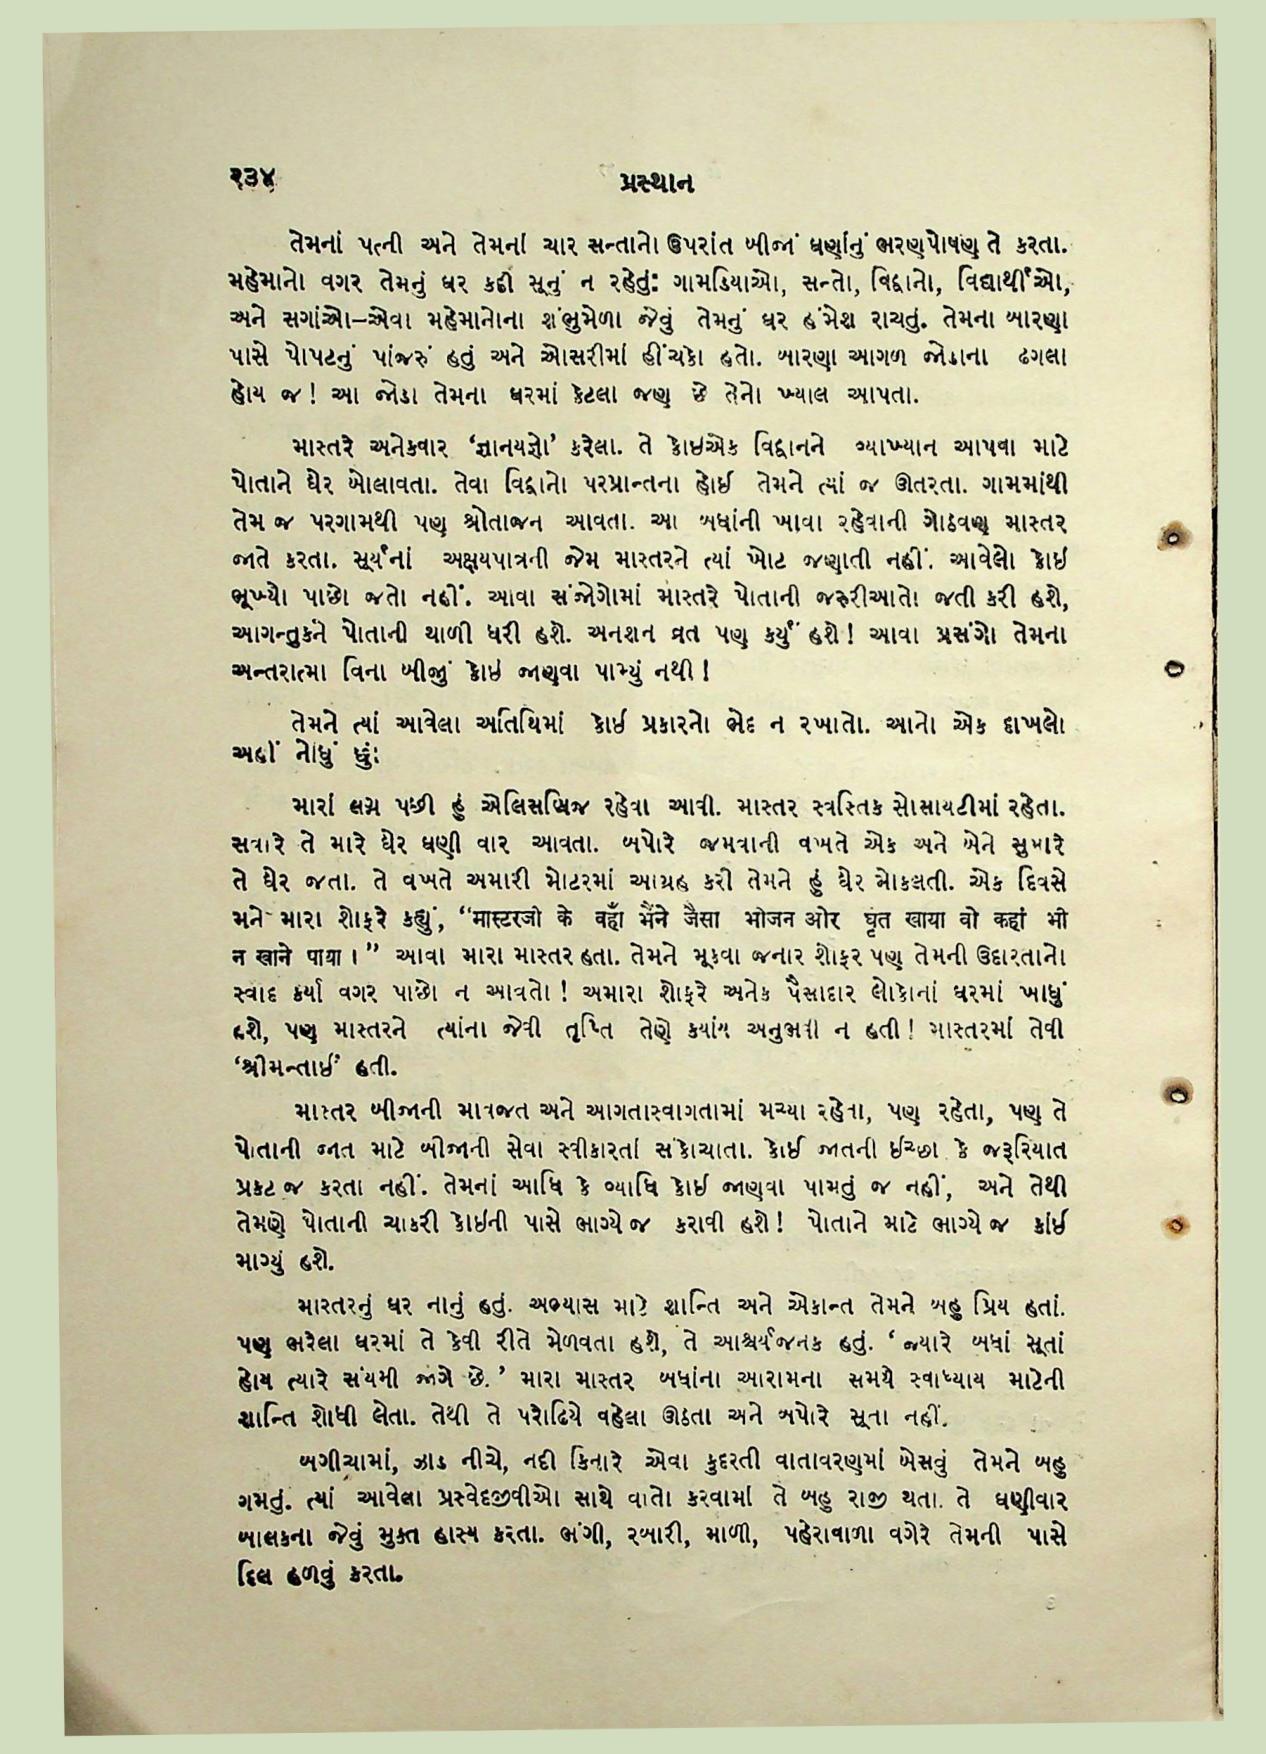 ૨૩૪
પ્રસ્થાન
તેમનાં પત્ની અને તેમનાં ચાર સન્તાનો ઉપરાંત બીજાં ઘણાંનું ભરણપોષણ તે કરતા.
મહેમાનો વગર તેમનું ઘર કદી સૂનું ન રહેતું: ગામડિયાઓ, સન્તો, વિદ્વાનો, વિદ્યાર્થીઓ,
અને સગાંઓ–એવા મહેમાનોના શંભુમેળા જેવું તેમનું ઘર હંમેશ રાચતું. તેમના બારણા
પાસે પોપટનું પાંજરું હતું અને ઓસરીમાં હીંચકો હતો. બારણા આગળ જોડાના ઢગલા
હોય જ! આ જોડા તેમના ઘરમાં કેટલા જણ છે તેનો ખ્યાલ આપતા.
માસ્તરે અનેકવાર ‘જ્ઞાનયજ્ઞો’ કરેલા. તે કોઇએક વિદ્વાનને વ્યાખ્યાન આપવા માટે
પોતાને ઘેર બોલાવતા. તેવા વિદ્વાનો પરપ્રાન્તના હોઈ તેમને ત્યાં જ ઊતરતા. ગામમાંથી
તેમ જ પરગામથી પણ શ્રોતાજન આવતા. આ બધાંની ખાવા રહેવાની ગોઠવણ માસ્તર
જાતે કરતા. સૂર્યનાં અક્ષયપાત્રની જેમ માસ્તરને ત્યાં ખોટ જણાતી નહીં. આવેલો કોઇ
ભૂખ્યો પાછો જતો નહીં. આવા સંજોગોમાં માસ્તરે પોતાની જરુરીઆતો જતી કરી હશે,
આગન્તુકને પોતાની થાળી ધરી હશે. અનશન વ્રત પણ કર્યું હશે! આવા પ્રસંગો તેમના
અન્તરાત્મા વિના બીજું કોઇ જાણવા પામ્યું નથી!
તેમને ત્યાં આવેલા અતિથિમાં કોઈ પ્રકારનો ભેદ ન રખાતો. આનો એક દાખલો
અહીં નોંધું છું:
મારાં લગ્ન પછી હું એલિસબ્રિજ રહેવા આવી. માસ્તર સ્વસ્તિક સોસાયટીમાં રહેતા.
સવારે તે મારે ઘેર ઘણી વાર આવતા. બપોરે જમવાની વખતે એક અને બેને સુમારે
તે ઘેર જતા. તે વખતે અમારી મોટરમાં આગ્રહ કરી તેમને હું ઘેર મોકલતી. એક દિવસે
મને મારા શોફરે કહ્યું, “मास्टरजी के वहाँ मैंने जैसा भोजन ओर घृत खाया वो कहां भी
न खाने पाया।” આવા મારા માસ્તર હતા. તેમને મૂકવા જનાર શોફર પણ તેમની ઉદારતાનો
સ્વાદ કર્યા વગર પાછો ન આવતો! અમારા શોફરે અનેક પૈસાદાર લોકોનાં ઘરમાં ખાધું
હશે, પણ માસ્તરને ત્યાંના જેવી તૃપ્તિ તેણે કયાંય અનુભવી ન હતી! માસ્તરમાં તેવી
‘શ્રીમન્તાઈ’ હતી.
માસ્તર બીજાની માવજત અને આગતાસ્વાગતામાં મચ્યા રહેતા, પણ રહેતા, પણ તે
પોતાની જાત માટે બીજાની સેવા સ્વીકારતાં સંકોચાતા. કોઈ જાતની ઈચ્છા કે જરૂરિયાત
પ્રકટ જ કરતા નહીં. તેમનાં આધિ કે વ્યાધિ કોઈ જાણવા પામતું જ નહીં, અને તેથી
તેમણે પોતાની ચાકરી કોઇની પાસે ભાગ્યે જ કરાવી હશે! પોતાને માટે ભાગ્યે જ કાંઈ
માગ્યું હશે.
માસ્તરનું ઘર નાનું હતું. અભ્યાસ માટે શાન્તિ અને એકાન્ત તેમને બહુ પ્રિય હતાં.
પણ ભરેલા ઘરમાં તે કેવી રીતે મેળવતા હશે, તે આશ્ચર્યજનક હતું. ‘જ્યારે બધાં સૂતાં
હોય ત્યારે સંયમી જાગે છે.’ મારા માસ્તર બધાંના આરામના સમયે સ્વાધ્યાય માટેની
શાન્તિ શોધી લેતા. તેથી તે પરોઢિયે વહેલા ઊઠતા અને બપોરે સૂતા નહીં.
બગીચામાં, ઝાડ નીચે, નદી કિનારે એવા કુદરતી વાતાવરણમાં બેસવું તેમને બહુ
ગમતું. ત્યાં આવેલા પ્રસ્વેદજીવીઓ સાથે વાતો કરવામાં તે બહુ રાજી થતા. તે ઘણીવાર
બાલકના જેવું મુક્ત હાસ્ય કરતા. ભંગી, રબારી, માળી, પહેરાવાળા વગેરે તેમની પાસે
દિલ હળવું કરતા.